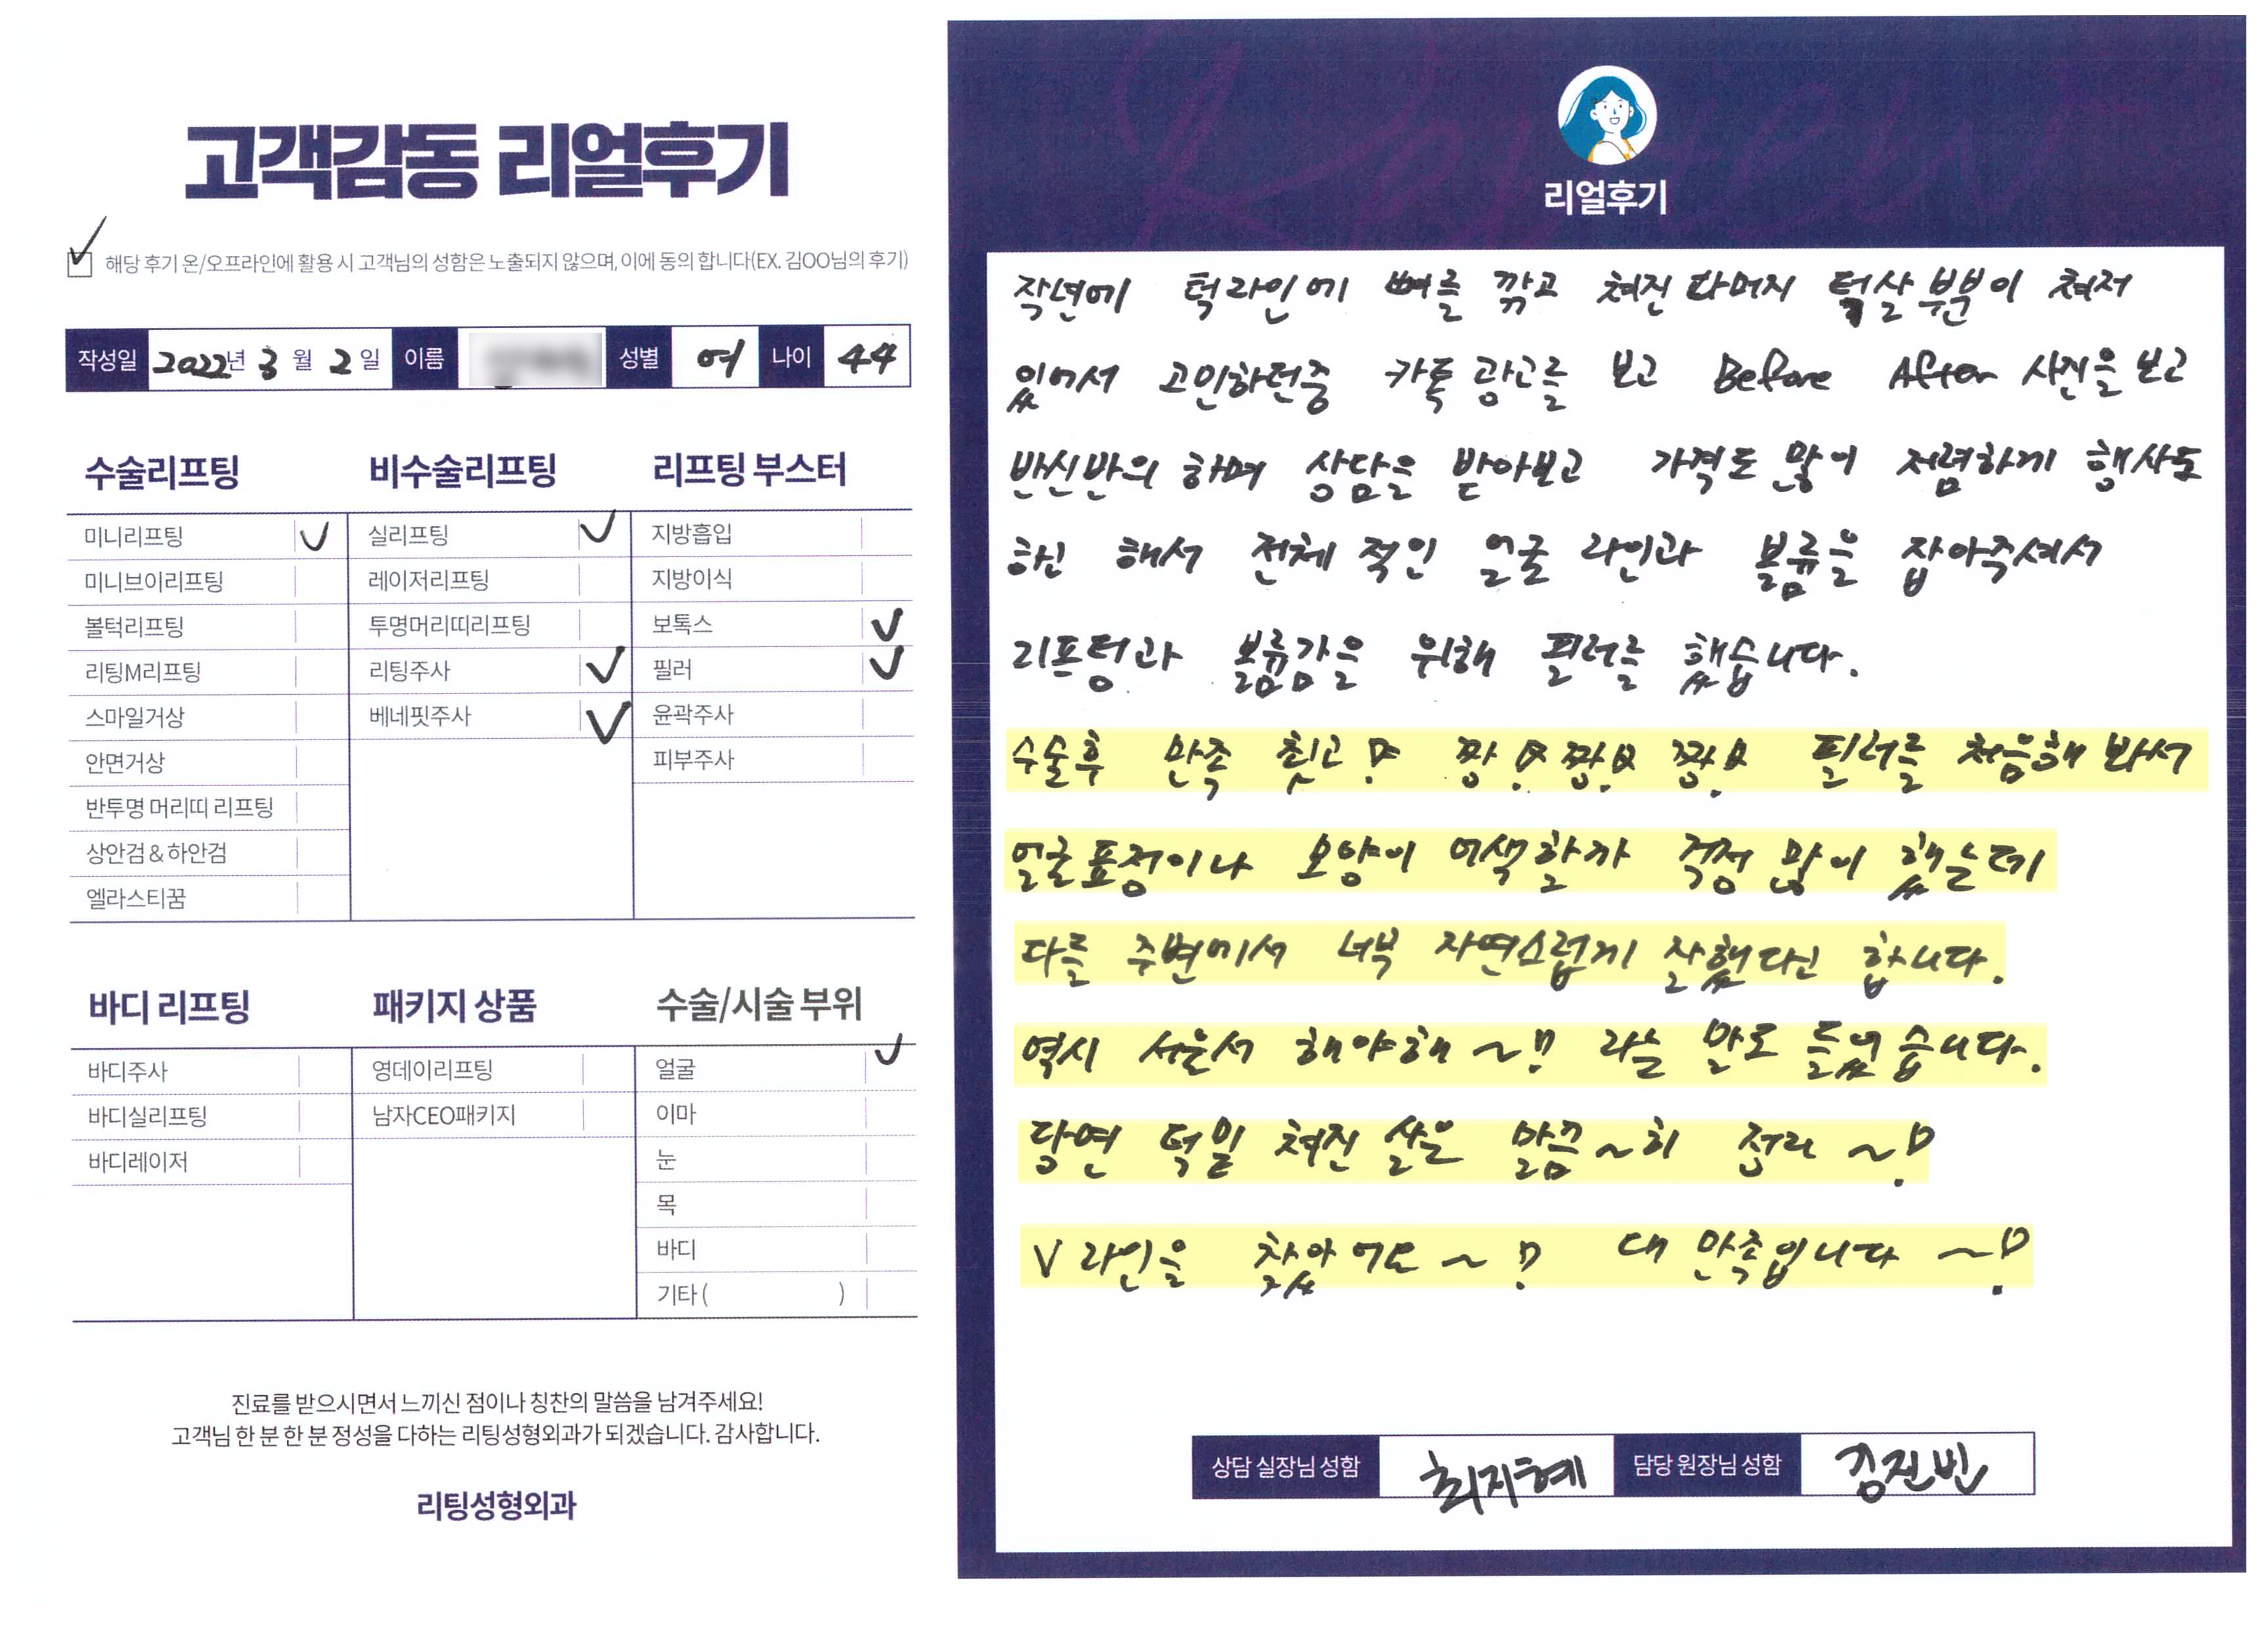 고객감동 리얼후기
해당 후기 온/오프라인에 활용 시 고객님의 성함은 노출되지 않으며, 이에 동의 합니다(EX. 김OO님의 후기)
작성일 2022년 3월 2일 이름 성별 여 나이 44
수술리프팅 비수술리프팅 리프팅 부스터
미니리프팅 ✓ 실리프팅 ✓ 지방흡입
미니브이리프팅 레이저리프팅 지방이식
볼턱리프팅 투명머리띠리프팅 보톡스 ✓
리팅M리프팅 리팅주사 ✓ 필러 ✓
스마일거상 베네핏주사 ✓ 윤곽주사
안면거상 피부주사
반투명 머리띠 리프팅
상안검 & 하안검
엘라스티꿈
바디 리프팅 패키지 상품 수술/시술 부위
바디주사 영데이리프팅 얼굴 ✓
바디실리프팅 남자CEO패키지 이마
바디레이저 눈
목
바디
기타 ( )
진료를 받으시면서 느끼신 점이나 칭찬의 말씀을 남겨주세요!
고객님 한 분 한 분 정성을 다하는 리팅성형외과가 되겠습니다. 감사합니다.
리팅성형외과
리얼후기
작년에 턱라인에 뼈를 깎고 쳐진 나머지 턱살 부분이 쳐저
있어서 고민하던중 카톡 광고를 보고 Before After 사진을 보고
반신반의 하며 상담을 받아보고 가격도 많이 저렴하게 행사도
하신 해서 전체 적인 얼굴 라인과 볼륨을 잡아주셔서
리프팅과 볼륨감을 위해 필러를 했습니다.
수술후 만족 최고! 짱! 짱! 짱! 필러를 처음해 봐서
얼굴표정이나 모양이 어색할까 걱정 많이 했는데
다를 주변에서 너무 자연스럽게 잘했다신 합니다.
역시 서울서 해야해 ~!! 라는 말도 들었습니다.
당연 턱밑 쳐진 살은 말끔~히 정리 ~!
V라인을 찾았어요 ~! 대 만족입니다 ~!
상담 실장님 성함 최지혜 담당 원장님 성함 김진빈